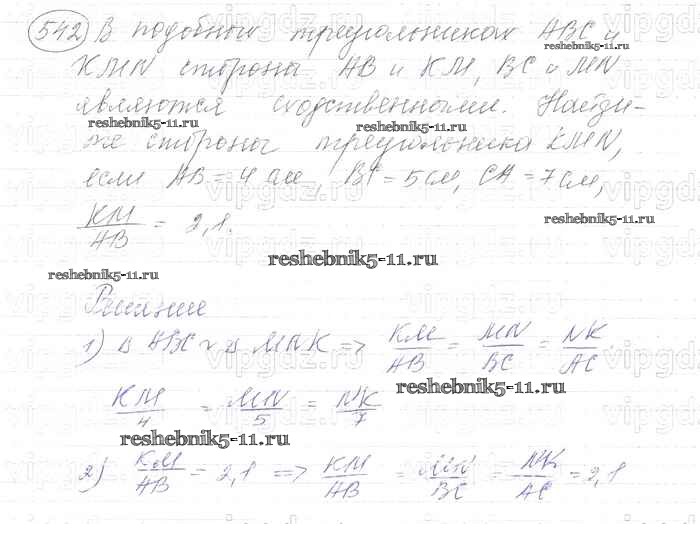 542) В подобных треугольниках ABC и
KMN стороны AB и KM, BC и MN
являются сходственными. Найди-
те стороны треугольника KMN,
если AB = 4 см, BC = 5 см, CA = 7 см,
KM/AB = 2,1.
Решение
1) Δ ABC ~ Δ MNK => KM/AB = MN/BC = NK/AC
KM/4 = MN/5 = NK/7
2) KM/AB = 2,1 => KM/AB = MN/BC = NK/AC = 2,1
reshebnik5-11.ru
reshebnik5-11.ru
reshebnik5-11.ru
reshebnik5-11.ru
reshebnik5-11.ru
reshebnik5-11.ru
reshebnik5-11.ru
reshebnik5-11.ru